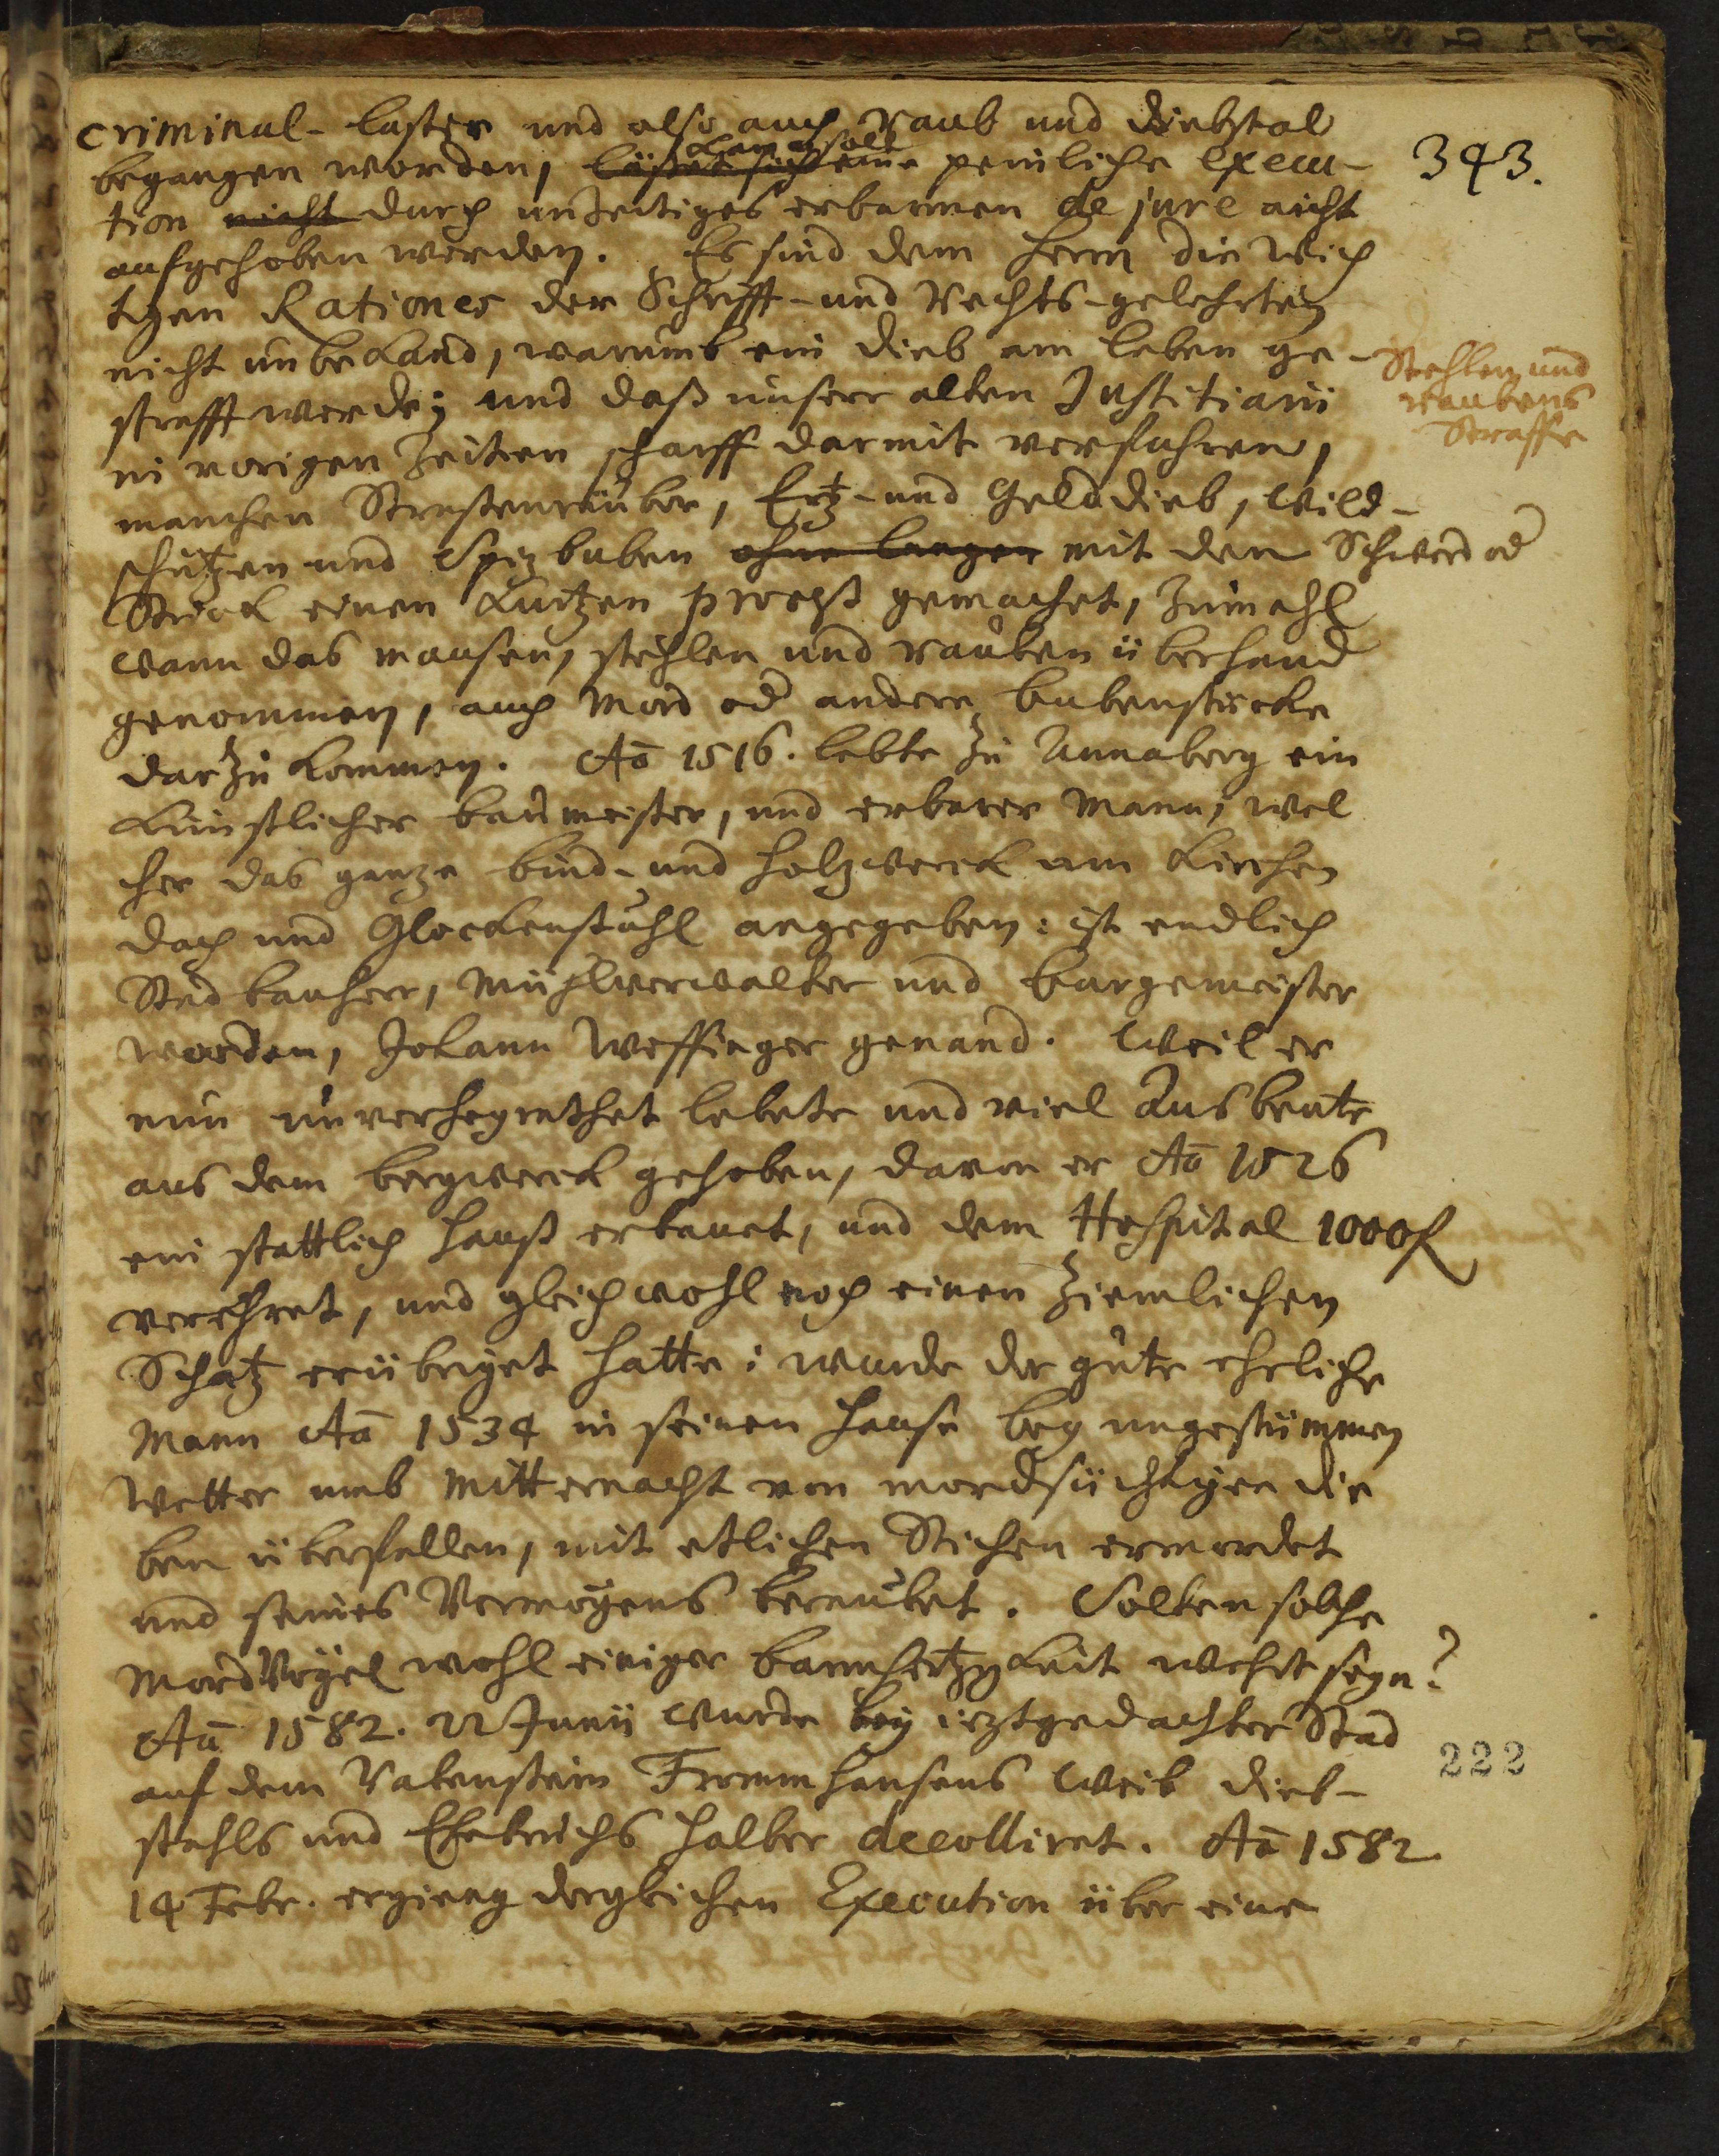 criminal-laster und also auch Raub und diebstal
begangen worden, läßet sich eine peinliche execu-
343.
tion nicht durch unzeitiges erbarmen de jure nicht
aufgehoben werden. Es sind dem Herrn die wich
tigen Rationes der Schrifft- und Rechts-gelehrten
nicht unbekand, warumb ein dieb am leben ge-
Stehlen und
raubens
Straffe
strafft werde; und daß unsere alten Justitiarii
in vorigen Zeiten scharff darmit verfuhren,
manchen Strasenräuber, Ertz- und Gelddieb, Wild-
schützen und Spizbuben ohne langen mit den Schwerd od
Strick einen kurtzen proceß gemachet, zumahl
wann das mausen, stehlen und rauben überhand
genommen, auch Mord od andere bubenstücke
darzu kommen. Aō 1516. lebte zu Annaberg ein
künstlicher baumeister, und erbarer Mann, wel
cher das ganze bind- und holzwerck am Kirchen
dach und Glockenstuhl angegeben: ist endlich
Stadbauherr, Mühlverwalter und burgemeister
worden, Johann Weffinger genand. Weil er
nun unverheyrathet lebete und viel Ausbeute
aus dem bergwerck gehoben, davon er Aō 1526
ein stattlich hauß erbauet, und dem Hospital 1000 fl
verehret, und gleichwohl noch einen ziemlichen
Schatz erübriget hatte: wurde der gute ehrliche
Mann Aō 1534 in seinen hause bey ungestümmen
Wetter umb Mitternacht von mordsüchtigen die
ben überfallen, mit etlichen Stichen ermordet
und seines Vermögens beraubet. Solten solche
MordVögel wohl einiger barmhertzgkeit wehrt seyn?
Aō 1582. 22 Junii wurde bey ieztgedachter Stad
222
auf dem Rabenstein Frommhansens Weib dieb-
stahls und Ehebruchs halber decolliret. Aō 1582
14 Febr. ergieng dergleichen Execution über eine